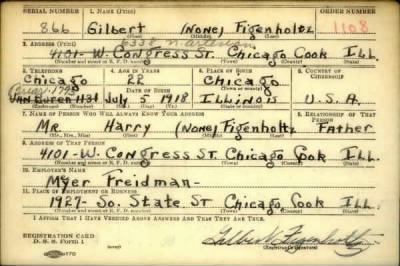 SERIAL NUMBER 1. NAME (Print) ORDER NUMBER
866 Gilbert (NONE) Figenholtz 1108
(First) (Middle) (Last)
2. ADDRESS (Print)
4101-W. Congress St. Chicago Cook Ill.
(Number and street or R. F. D. number) (Town) (County) (State)
3. TELEPHONE 4. AGE IN YEARS 5. PLACE OF BIRTH 6. COUNTRY OF CITIZENSHIP
Chicago 22 Chicago
DATE OF BIRTH
VAN BUREN 1131 July 5 1918 Illinois U.S.A.
7. NAME OF PERSON WHO WILL ALWAYS KNOW YOUR ADDRESS 8. RELATIONSHIP OF THAT PERSON
Mr Harry (NONE) Figenholtz Father
(Mr., Mrs., Miss) (First) (Middle) (Last)
9. ADDRESS OF THAT PERSON
4101-W. Congress St. Chicago Cook Ill.
(Number and street or R. F. D. number) (Town) (County) (State)
10. EMPLOYER'S NAME
Myer Freidman-
11. PLACE OF EMPLOYMENT OR BUSINESS
1927-So. State St Chicago Cook Ill
(Number and street or R. F. D. number) (Town) (County) (State)
I AFFIRM THAT I HAVE VERIFIED ABOVE ANSWERS AND THAT THEY ARE TRUE.
REGISTRATION CARD
D. S. S. Form 1
Gilbert Figenholtz
(Registrant's signature)